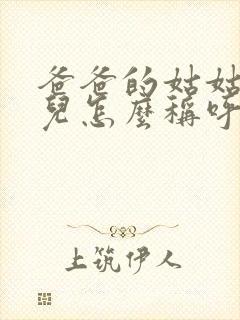 爸爸的姑姑
兒怎麼稱呼
上筑伊人